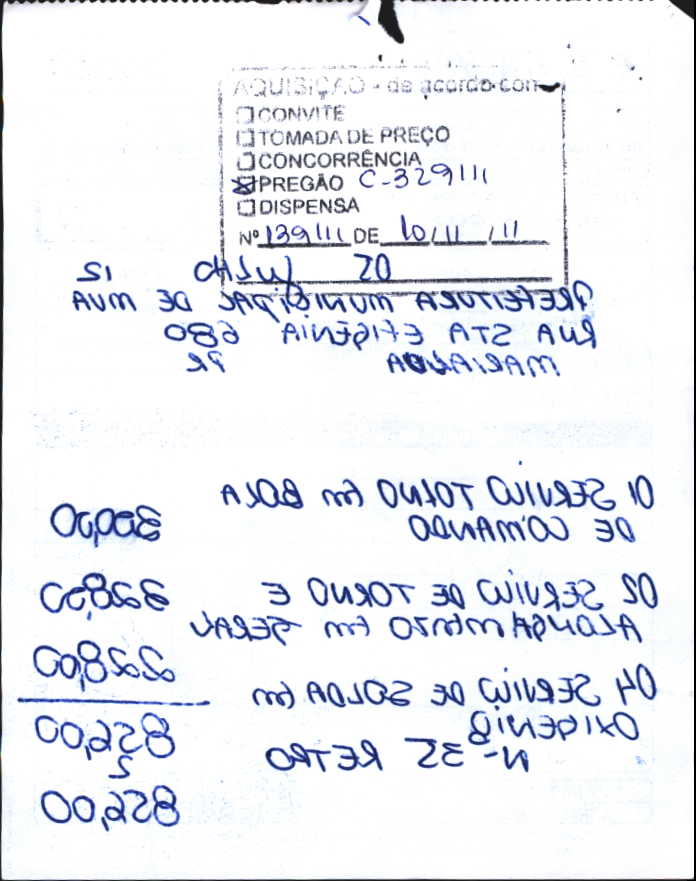 AQUISIÇÃO - de acordo com
☐ CONVITE
☐ TOMADA DE PREÇO
☐ CONCORRÊNCIA
☒ PREGÃO C-329111
☐ DISPENSA
Nº 139/11 DE 10/11/11
02 JULHO 12
PREFEITURA MUNICIPAL DE
RUA STA EFIGENIA 680
MARILANDA PR
01 SERVIÇO TORNO Em BOLA
DE COMANDO 300,00
02 SERVIÇO DE TORNO E 328,00
ALONGAMENTO Em GERAL
04 SERVIÇO DE SOLDA Em 228,00
OXIGENIO
N- 35 RETRO 856,00
856,00